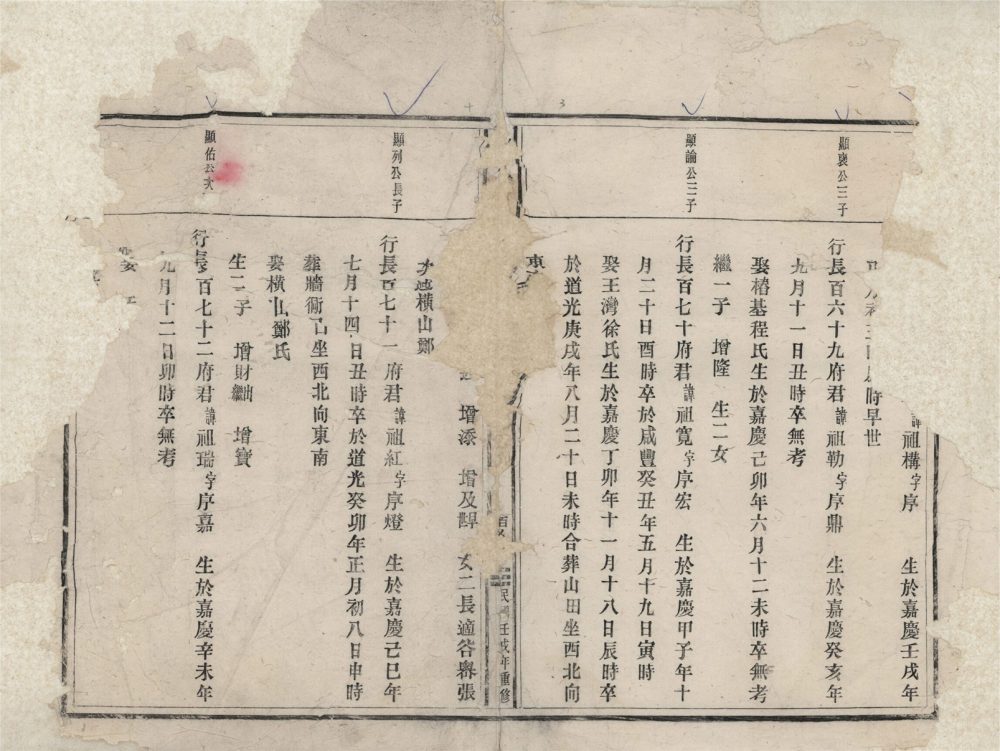 諱祖構字序 生於嘉慶壬戌年
時早世
顯襃公三子
行長百六十九府君諱祖勒字序鼎 生於嘉慶癸亥年
九月十一日丑時卒無考
娶椿基程氏生於嘉慶己卯年六月十二未時卒無考
繼一子 增隆 生二女
顯論公三子
行長百七十府君諱祖寬字序宏 生於嘉慶甲子年十
月二十日酉時卒於咸豐癸丑年五月十九日寅時
娶王灣徐氏生於嘉慶丁卯年十一月十八日辰時卒
於道光庚戌年八月二十日未時合葬山田坐西北向
東
民國壬戌年重修
增添 增及 女二長適谷嶴張
次適橫山鄭
顯列公長子
行長百七十一府君諱祖紅字序燈 生於嘉慶己巳年
七月十四日丑時卒於道光癸卯年正月初八日申時
葬牆衕坐西北向東南
娶橫山鄭氏
生二子 增財繼 增寶
顯佑公次
行長百七十二府君諱祖瑞字序嘉 生於嘉慶辛未年
九月十二日卯時卒無考
娶